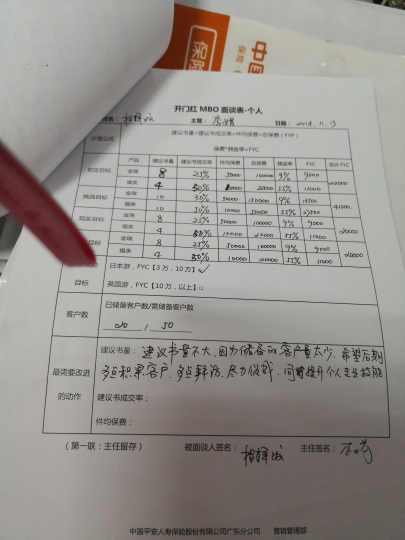 中国
保险·
保险
开门红 MBO 面谈表-个人
主管：
日期：2018.11.13
价值公式
建议书量*建议书成交率*件均保费=总保费（FYP）
保费*佣金率=FYC
产品 建议书量 建议书成交率 件均保费 总保费 佣金率 FYC 合计 FYC
金瑞 8 25% 50000 100000 9% 9000
福类 4 50% 10000 20000 55% 11000 20000
挑战目标 金瑞 10 30% 50000 150000 9%
福类 10 50% 10000 50000 55% 27500 41000
现实目标 金瑞 8 25% 50000 100000 9% 9000
福类 4 50% 10000 20000 55% 11000 20000
目标 金瑞 8 25% 50000 100000 9% 9000
福类 4 50% 10000 20000 55% 11000 20000
日本游，FYC【3 万，10 万】√
目标 英国游，FYC【10 万，以上】□
客户数 已储备客户数/需储备客户数
20 / 50
最需要改进的动作
建议书量：建议书量不大，因为储备的客户量太少，希望后期
多点积累客户，多点拜访，尽力促成，同时提升个人专业技能
建议书成交率：
件均保费：
（第一联：主任留存） 被面谈人签名： 主任签名：
中国平安人寿保险股份有限公司广东分公司 营销管理部